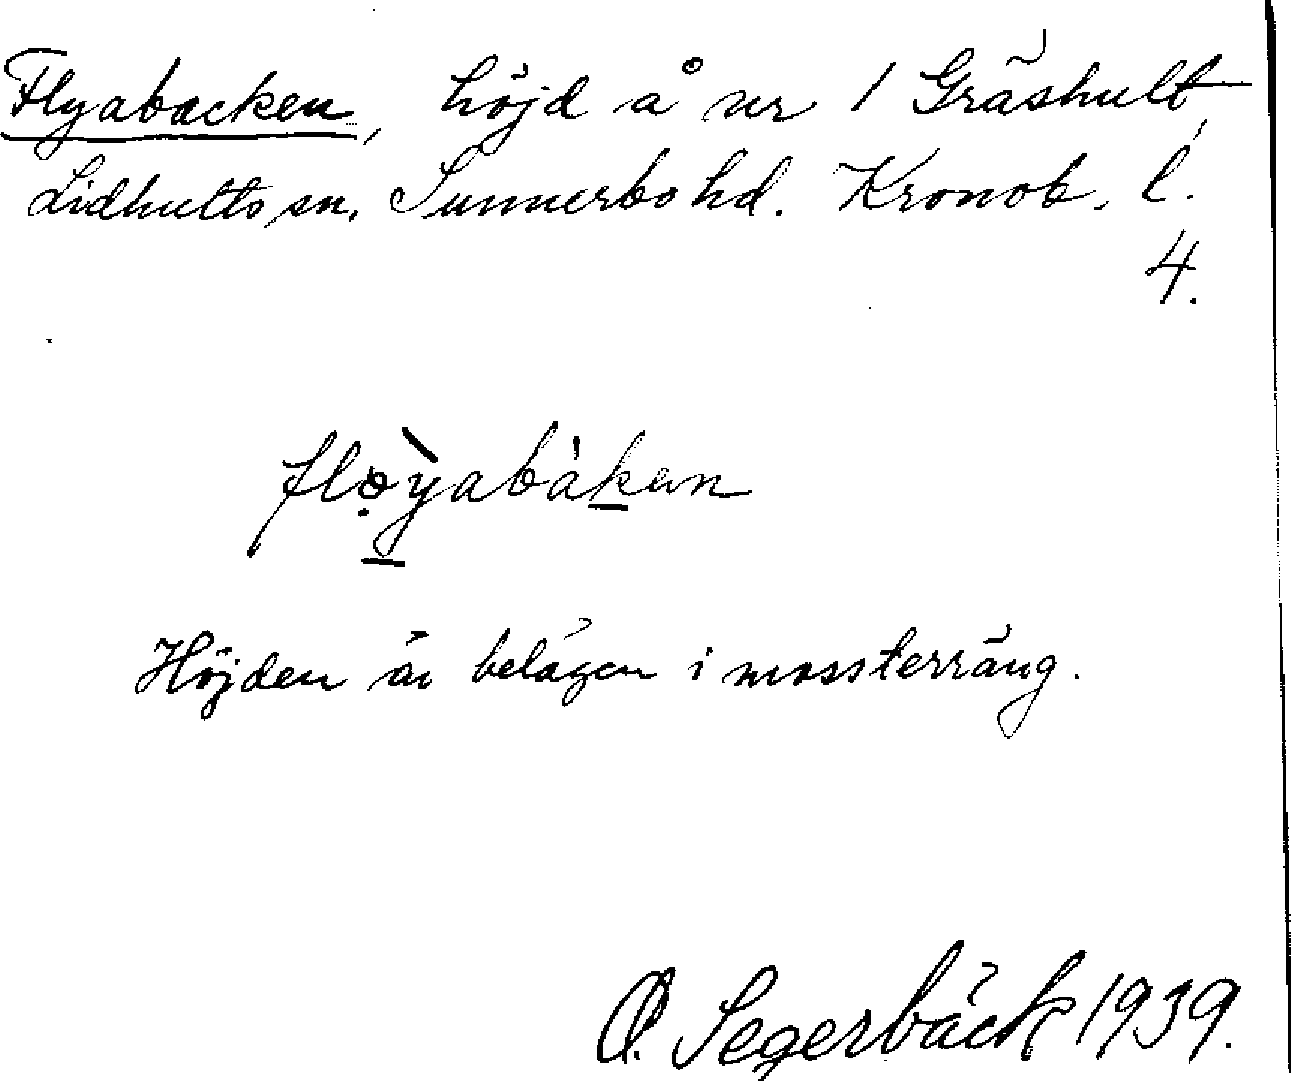 Flyabacken, höjd å nr 1 Gräshult,
Lidhults sn. Sunnerbo hd. Kronob. l.
4.
fløỳabàken
Höjden är belägen i mossterräng.
O. Segerbäck 1939.